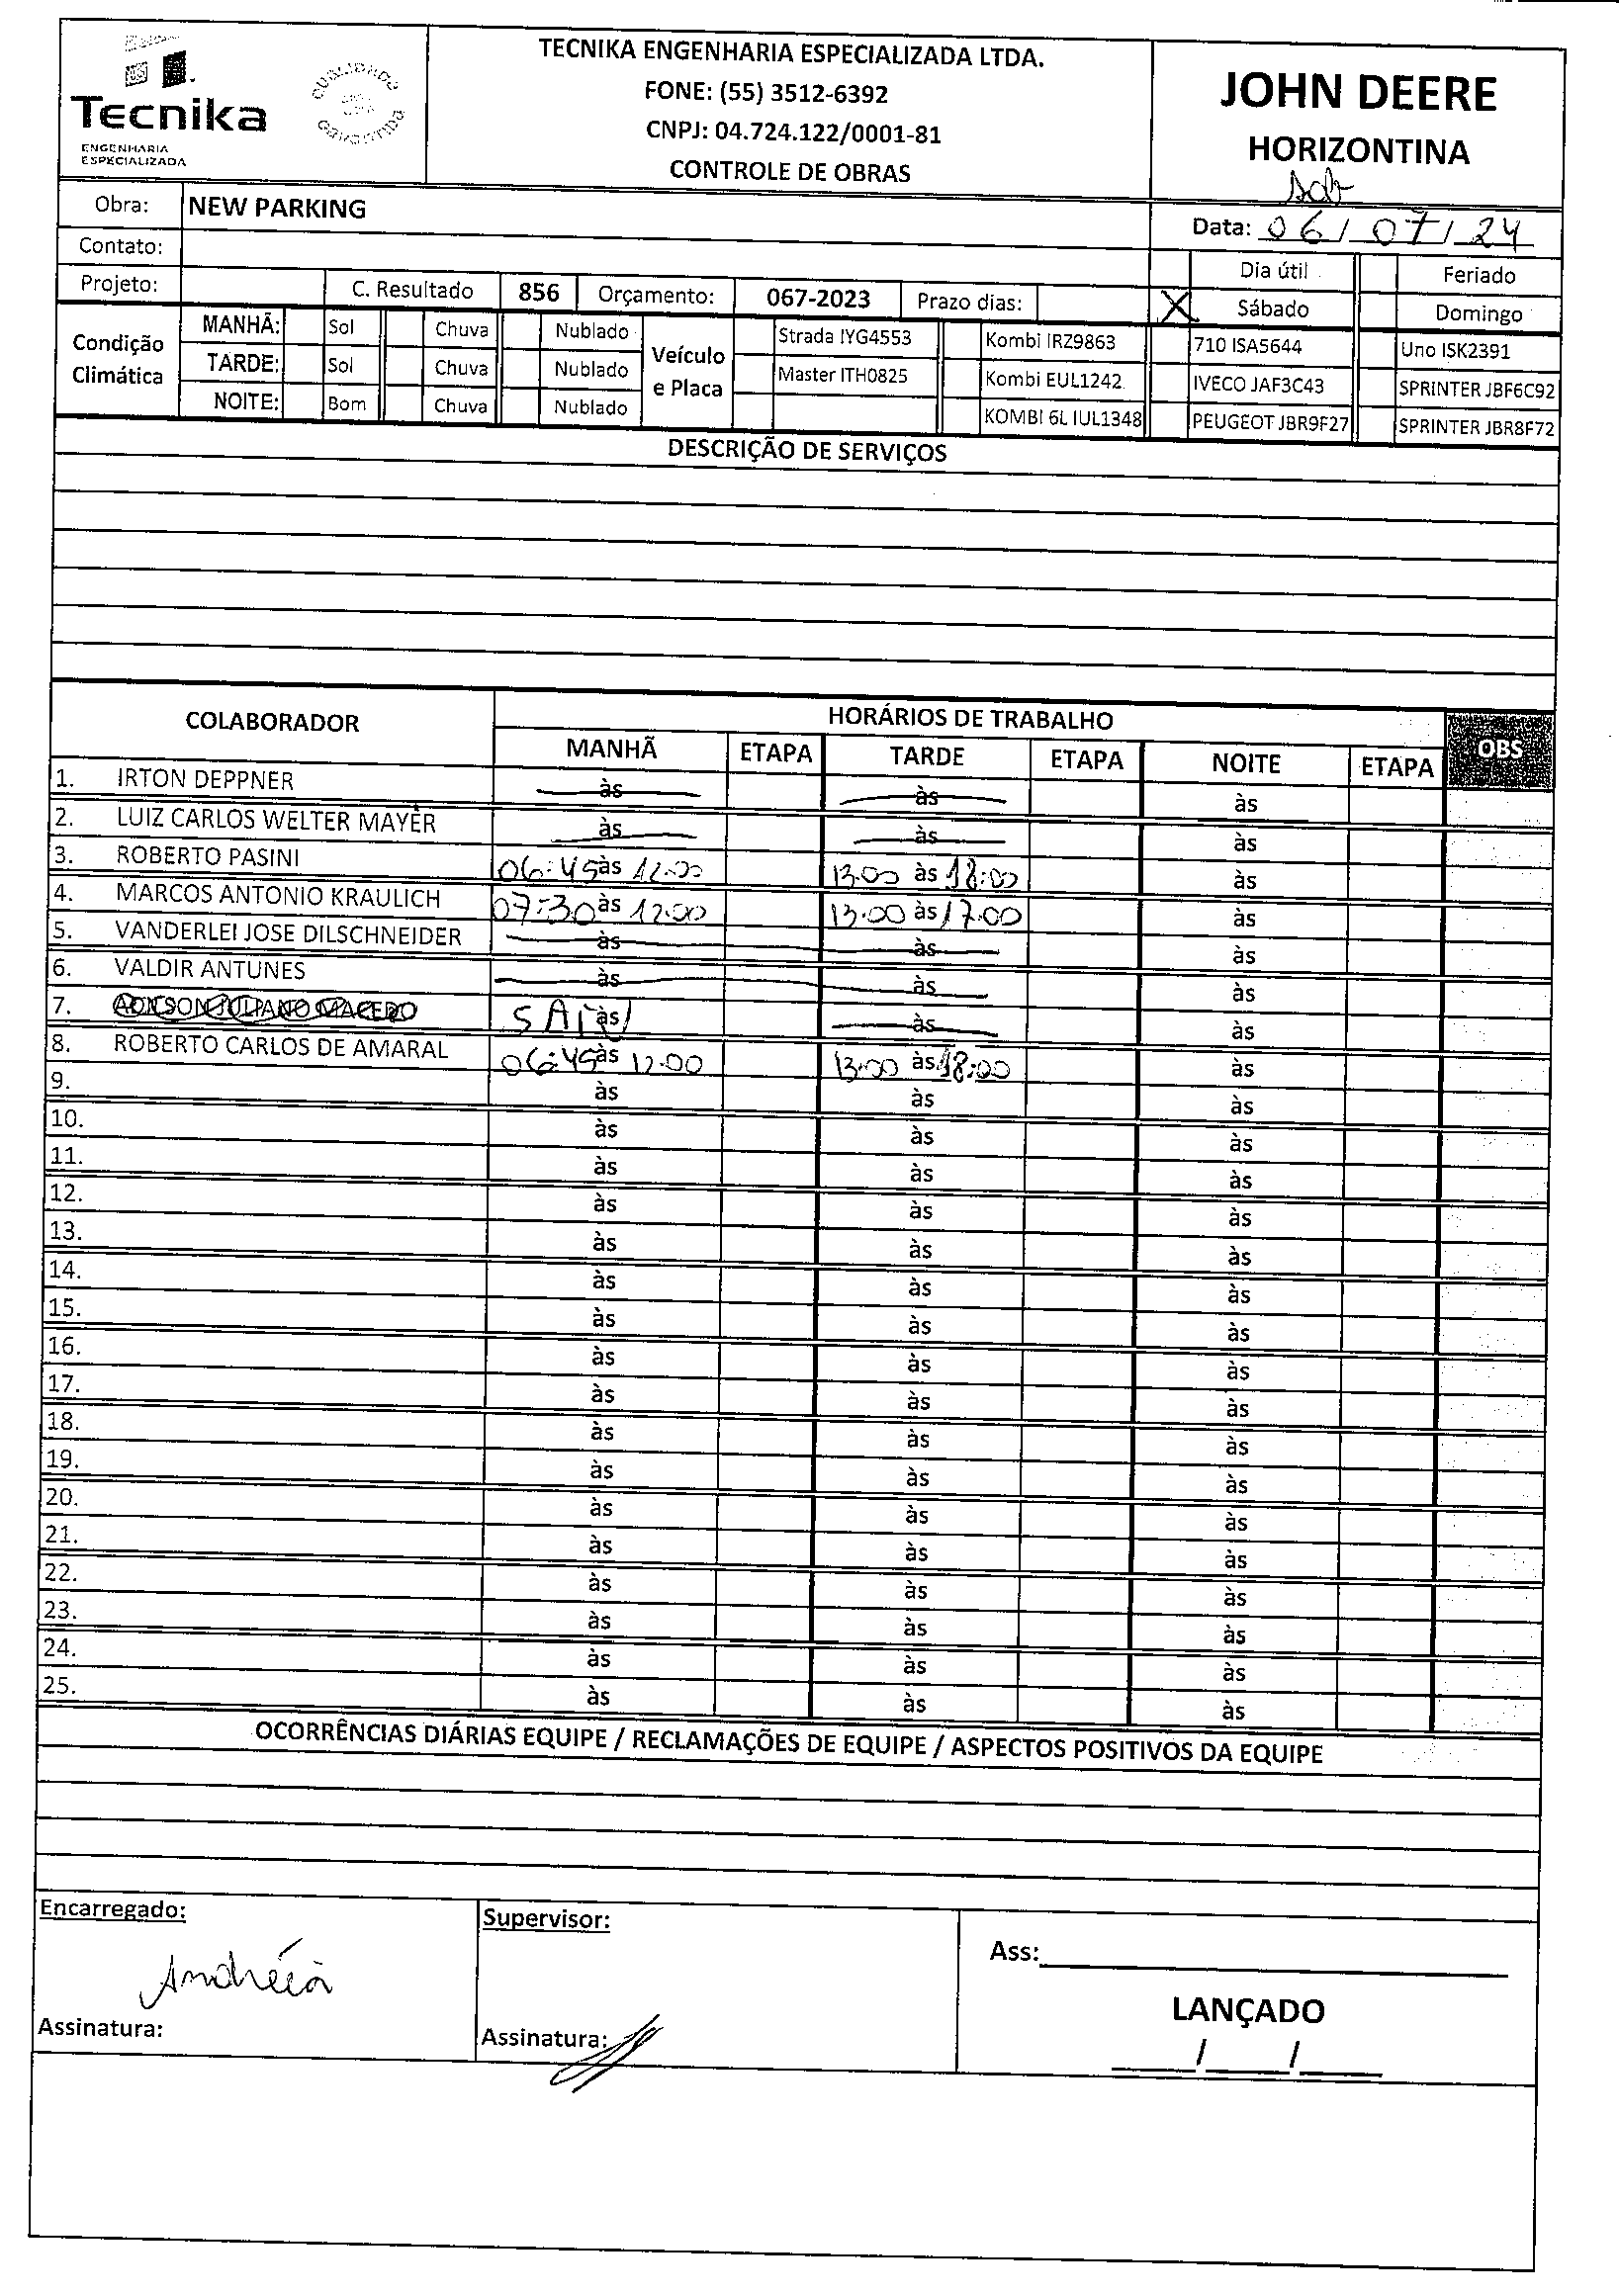 Tecnika
ENGENHARIA
ESPECIALIZADA
QUALIDADE
GARANTIDA
TECNIKA ENGENHARIA ESPECIALIZADA LTDA.
FONE: (55) 3512-6392
CNPJ: 04.724.122/0001-81
CONTROLE DE OBRAS
JOHN DEERE
HORIZONTINA
Sab
Obra: NEW PARKING
Data: 06/07/24
Contato:
Dia útil Feriado
Projeto: C. Resultado 856 Orçamento: 067-2023 Prazo dias: X Sábado Domingo
Condição Climática
MANHÃ: Sol Chuva Nublado
TARDE: Sol Chuva Nublado
NOITE: Bom Chuva Nublado
Veículo e Placa
Strada IYG4553 Kombi IRZ9863 710 ISA5644 Uno ISK2391
Master ITH0825 Kombi EUL1242 IVECO JAF3C43 SPRINTER JBF6C92
KOMBI 6L IUL1348 PEUGEOT JBR9F27 SPRINTER JBR8F72
DESCRIÇÃO DE SERVIÇOS
COLABORADOR HORÁRIOS DE TRABALHO OBS
MANHÃ ETAPA TARDE ETAPA NOITE ETAPA
1. IRTON DEPPNER às às às
2. LUIZ CARLOS WELTER MAYER às às às
3. ROBERTO PASINI 06:45 às 12:00 13:00 às 18:00 às
4. MARCOS ANTONIO KRAULICH 07:30 às 12:00 13:00 às 17:00 às
5. VANDERLEI JOSE DILSCHNEIDER às às às
6. VALDIR ANTUNES às às às
7. SAIU às às às
8. ROBERTO CARLOS DE AMARAL 06:45 às 12:00 13:00 às 18:00 às
9. às às às
10. às às às
11. às às às
12. às às às
13. às às às
14. às às às
15. às às às
16. às às às
17. às às às
18. às às às
19. às às às
20. às às às
21. às às às
22. às às às
23. às às às
24. às às às
25. às às às
OCORRÊNCIAS DIÁRIAS EQUIPE / RECLAMAÇÕES DE EQUIPE / ASPECTOS POSITIVOS DA EQUIPE
Encarregado:
Andréia
Assinatura:
Supervisor:
Assinatura:
Ass:
LANÇADO
/ /